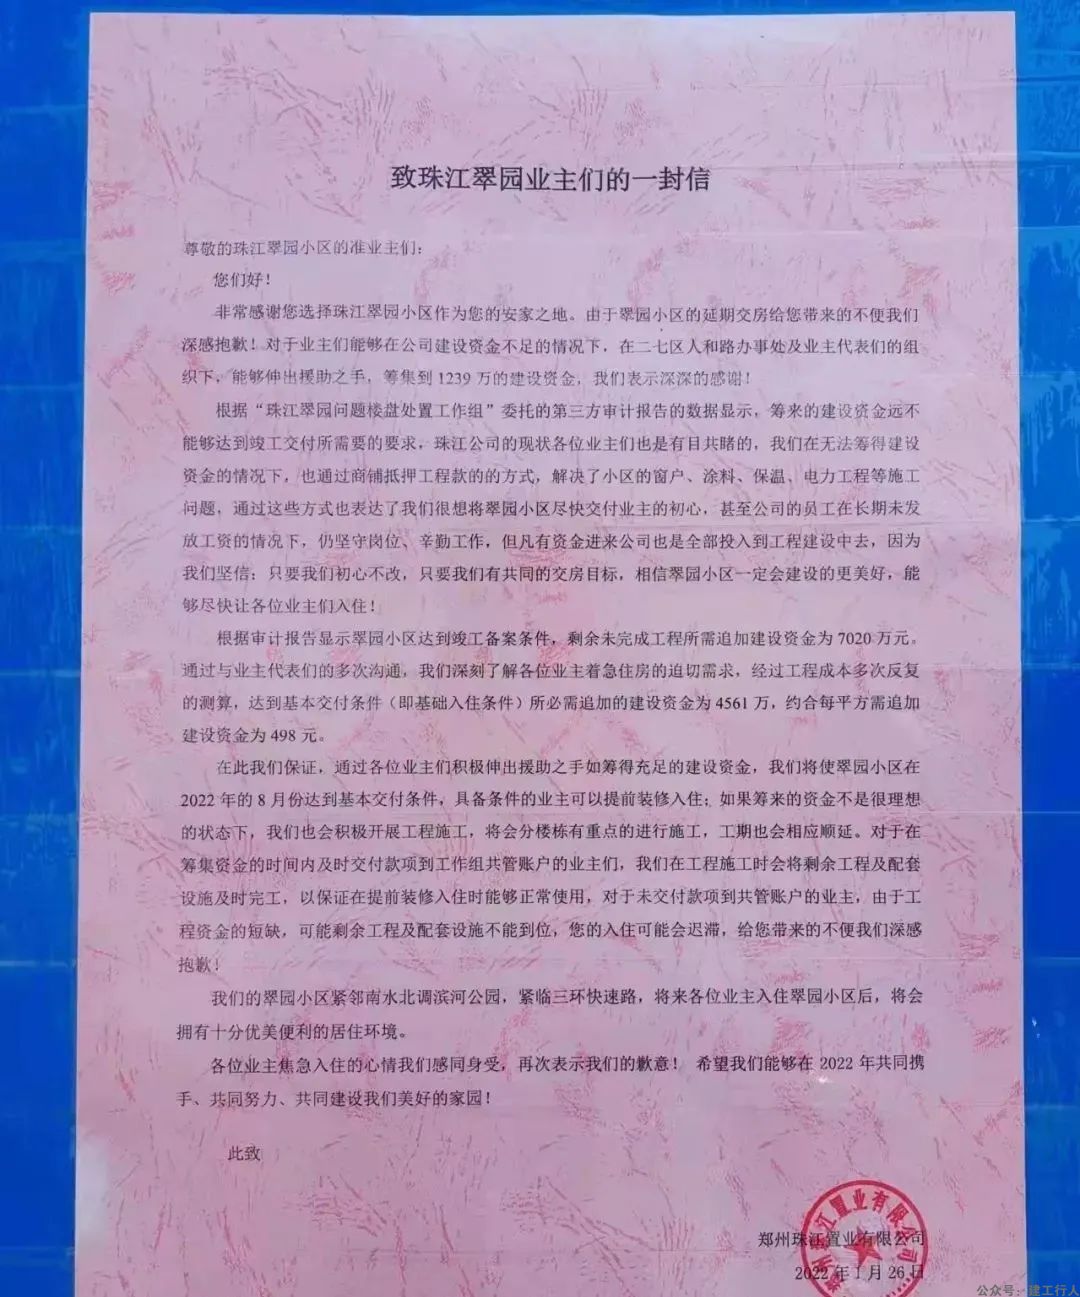 致珠江翠园业主们的一封信
尊敬的珠江翠园小区的准业主们：
您们好！
非常感谢您选择珠江翠园小区作为您的安家之地。由于翠园小区的延期交房给您带来的不便我们
深感抱歉！对于业主们能够在公司建设资金不足的情况下，在二七区人和路办事处及业主代表们的组
织下，能够伸出援助之手，筹集到 1239 万的建设资金，我们表示深深的感谢！
根据“珠江翠园问题楼盘处置工作组”委托的第三方审计报告的数据显示，筹来的建设资金远不
能够达到竣工交付所需要的要求，珠江公司的现状各位业主们也是有目共睹的，我们在无法筹得建设
资金的情况下，也通过商铺抵押工程款的的方式，解决了小区的窗户、涂料、保温、电力工程等施工
问题，通过这些方式也表达了我们很想将翠园小区尽快交付业主的初心，甚至公司的员工在长期未发
放工资的情况下，仍坚守岗位、辛勤工作，但凡有资金进来公司也是全部投入到工程建设中去，因为
我们坚信：只要我们初心不改，只要我们有共同的交房目标，相信翠园小区一定会建设的更美好，能
够尽快让各位业主们入住！
根据审计报告显示翠园小区达到竣工备案条件，剩余未完成工程所需追加建设资金为 7020 万元。
通过与业主代表们的多次沟通，我们深刻了解各位业主着急住房的迫切需求，经过工程成本多次反复
的测算，达到基本交付条件（即基础入住条件）所必需追加的建设资金为 4561 万，约合每平方需追加
建设资金为 498 元。
在此我们保证，通过各位业主们积极伸出援助之手如筹得充足的建设资金，我们将使翠园小区在
2022 年的 8 月份达到基本交付条件，具备条件的业主可以提前装修入住；如果筹来的资金不是很理想
的状态下，我们也会积极开展工程施工，将会分楼栋有重点的进行施工，工期也会相应顺延。对于在
筹集资金的时间内及时交付款项到工作组共管账户的业主们，我们在工程施工时会将剩余工程及配套
设施及时完工，以保证在提前装修入住时能够正常使用，对于未交付款项到共管账户的业主，由于工
程资金的短缺，可能剩余工程及配套设施不能到位，您的入住可能会迟滞，给您带来的不便我们深感
抱歉！
我们的翠园小区紧邻南水北调滨河公园，紧临三环快速路，将来各位业主入住翠园小区后，将会
拥有十分优美便利的居住环境。
各位业主焦急入住的心情我们感同身受，再次表示我们的歉意！ 希望我们能够在 2022 年共同携
手、共同努力、共同建设我们美好的家园！
此致
郑州珠江置业有限公司
2022 年 1 月 26 日
郑州珠江置业有限公司
公众号：建工行人